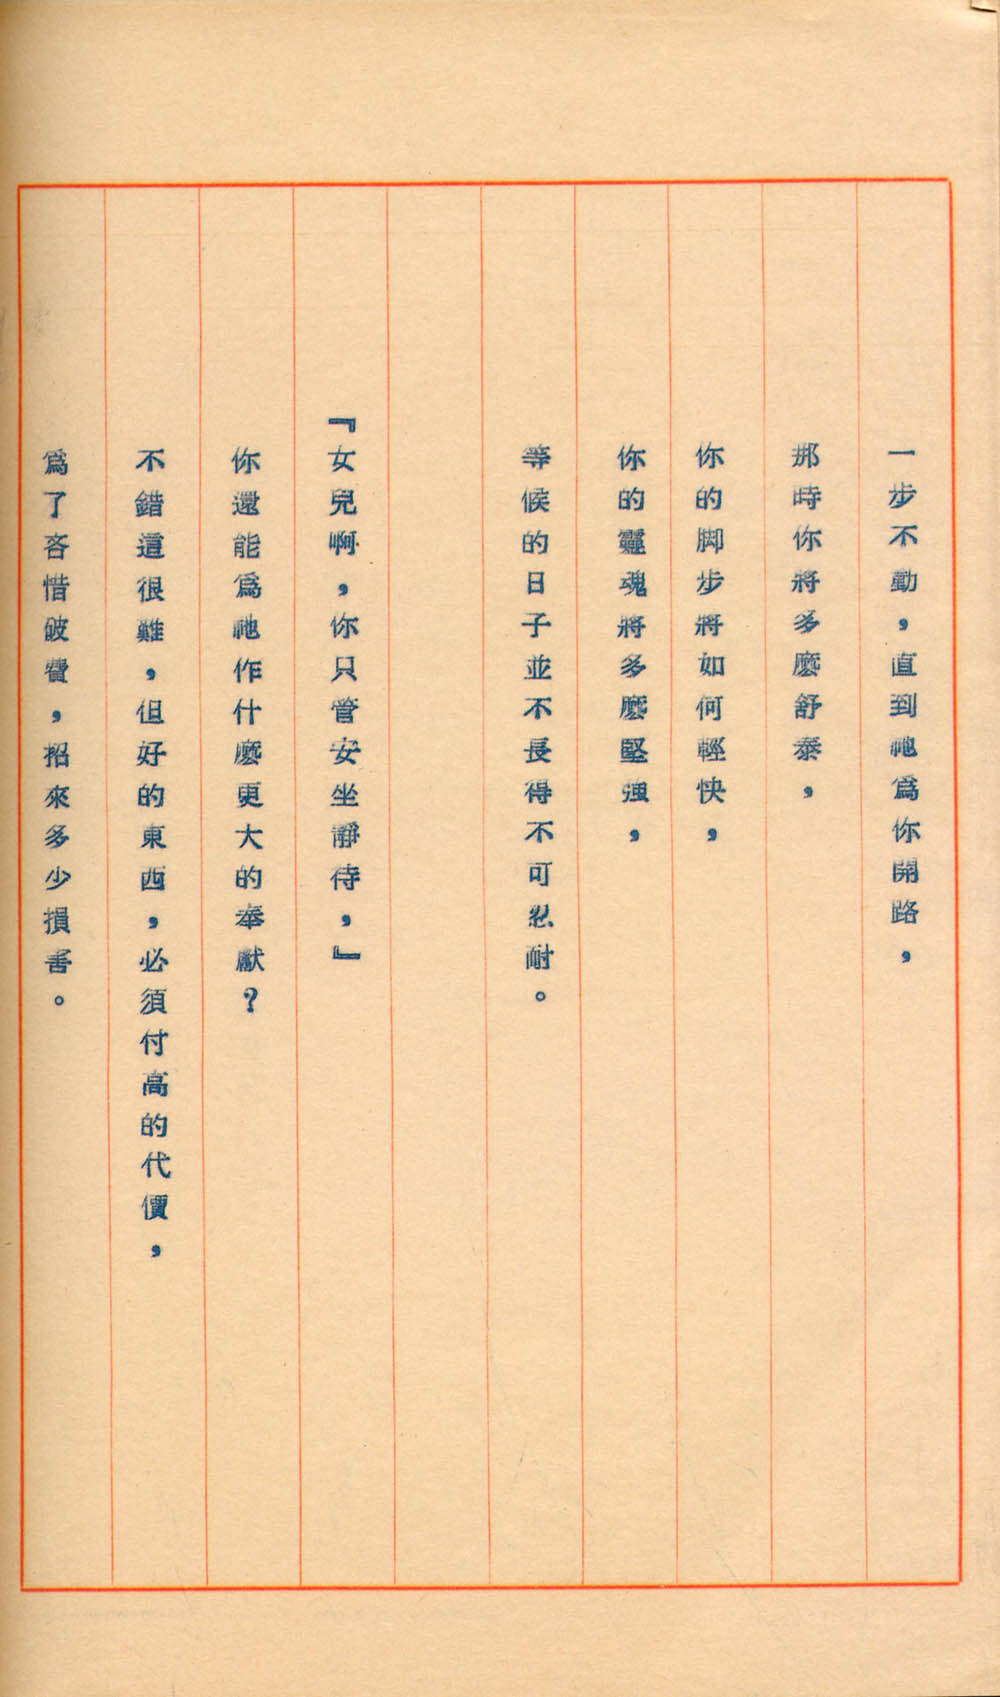 一步不動，直到祂爲你開路，
那時你將多麼舒泰，
你的脚步將如何輕快，
你的靈魂將多麼堅强，
等候的日子並不長得不可忍耐。
『女兒啊，你只管安坐靜待，』
你還能爲祂作什麼更大的奉獻？
不錯這很難，但好的東西，必須付高的代價，
爲了吝惜破費，招來多少損害。